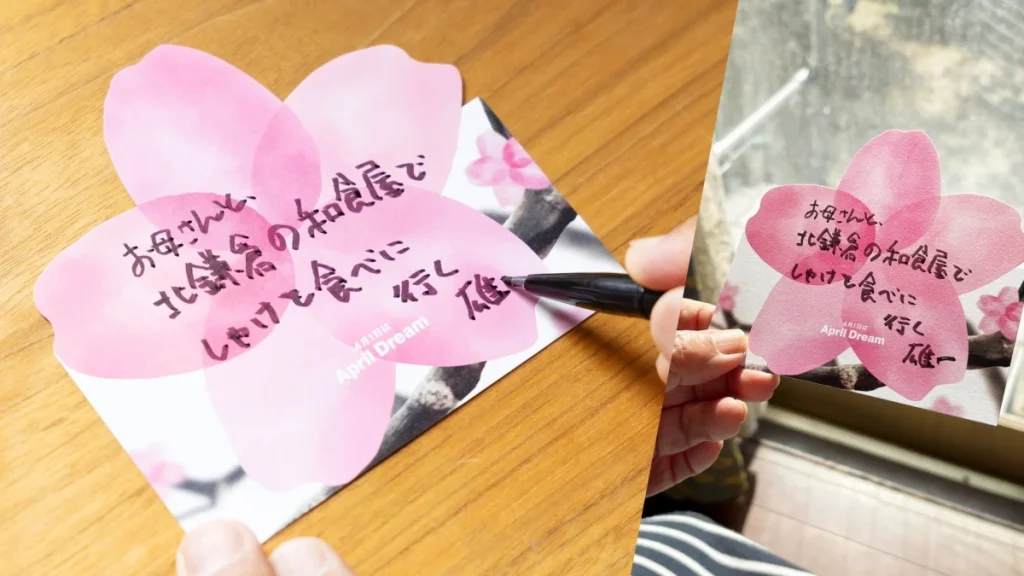 お母さんと、
北鎌倉の和食屋で
しゃけを食べに
行く
雄一
4月1日は
April Dream
お母さんと、
北鎌倉の和食屋で
しゃけを食べに
行く
雄一
4月1日は
April Dream